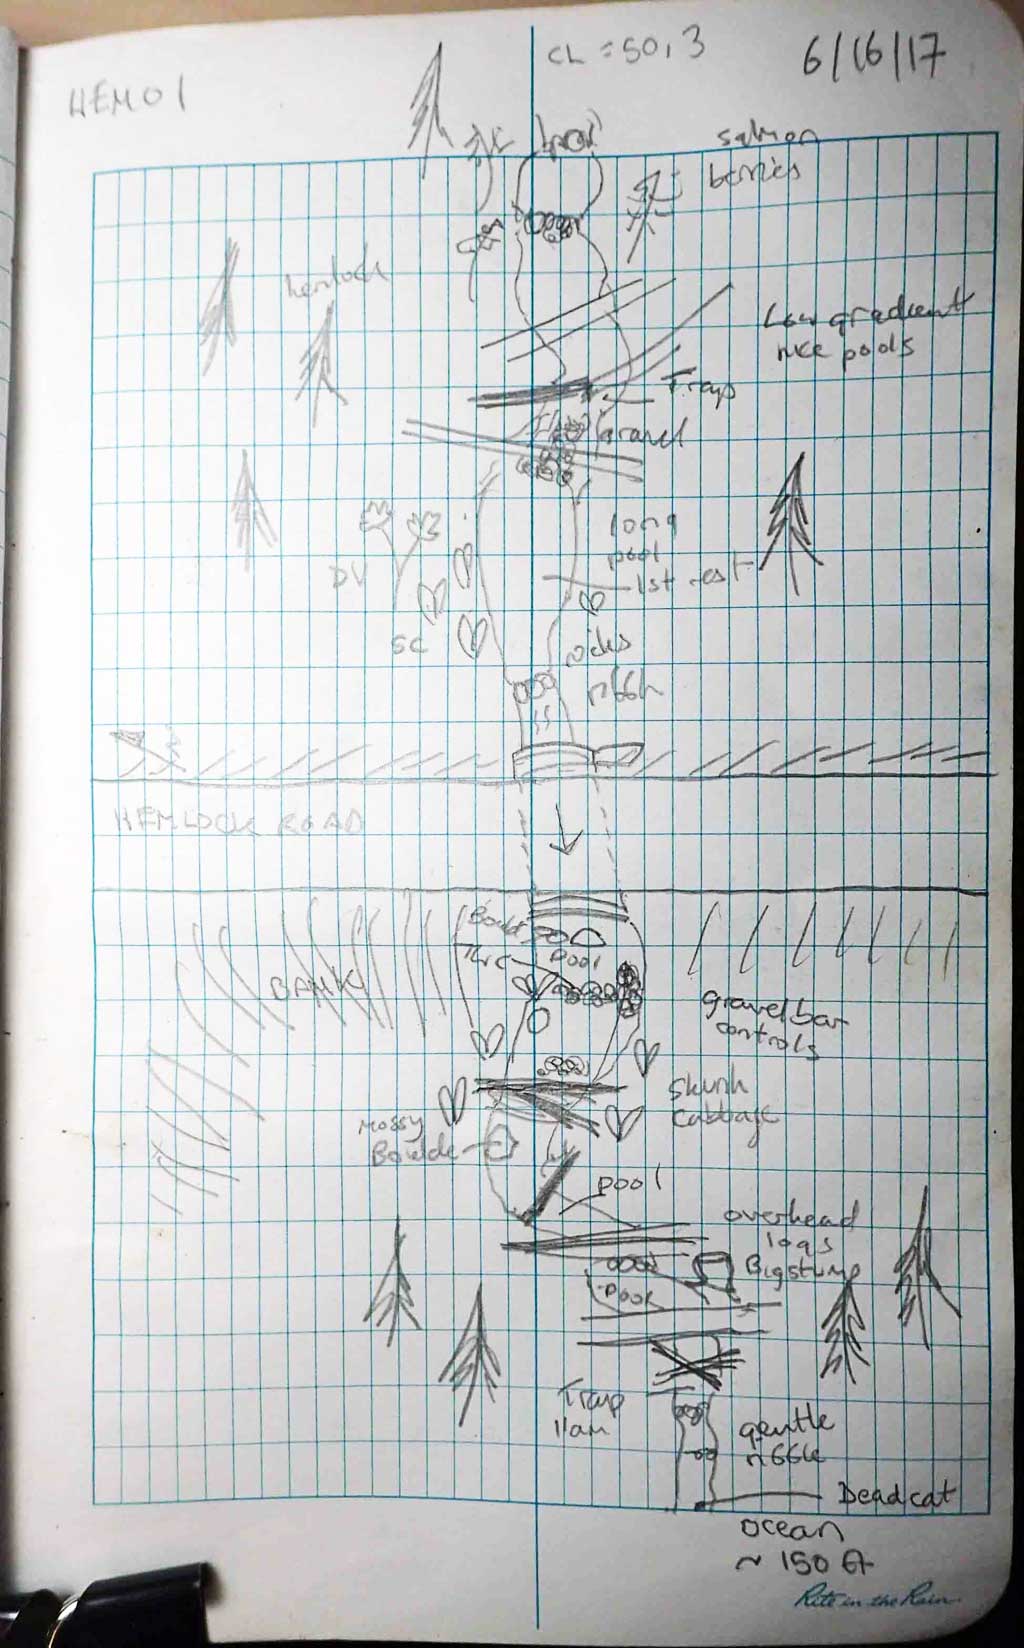 HEM01
CL = 50.3
6/16/17
salmon
berries
hemlock
Low gradient
nice pools
Trap
Gravel
long
pool
1st rest
DV
SC
rocks
riffle
HEMLOCK ROAD
BANK
pool
gravel bar
controls
Skunk
Cabbage
Mossy
Boulder
pool
overhead
logs
Big stump
pool
Trap
11am
gentle
riffle
Dead cat
ocean
~ 150 ft
Rite in the Rain